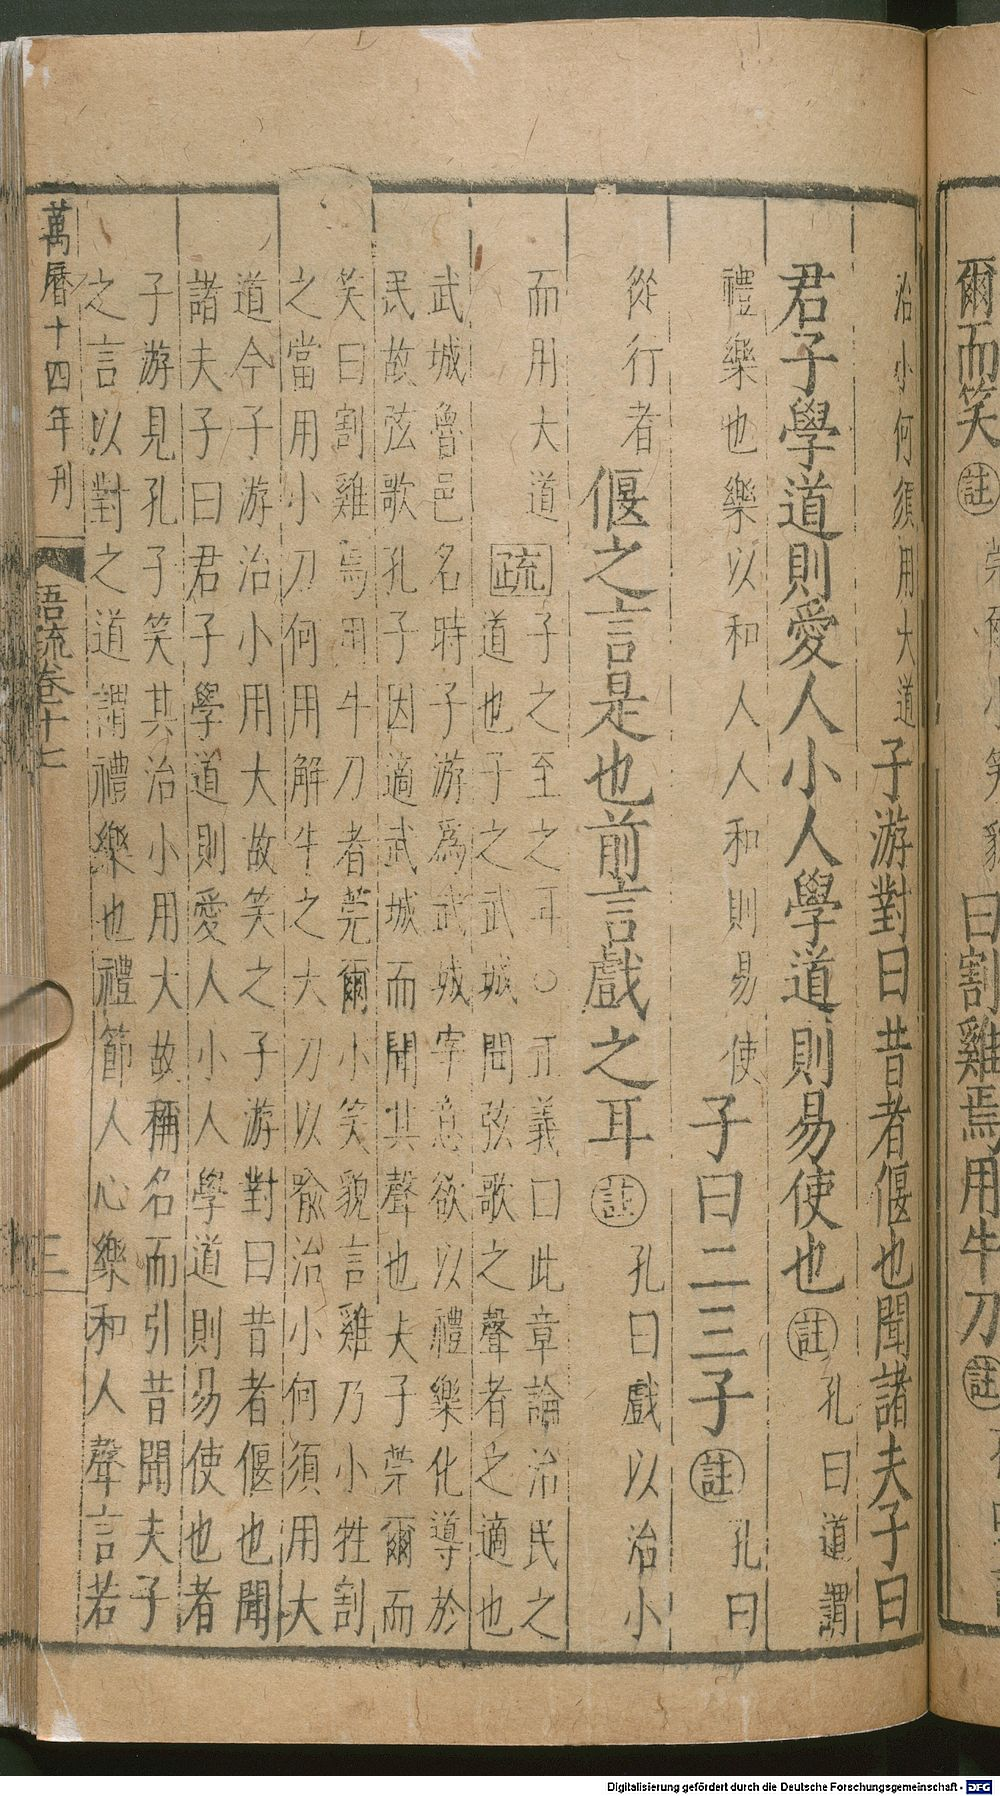 爾而笑註
曰割雞焉用牛刀註
治小何須用大道子游對曰昔者偃也聞諸夫子曰
君子學道則愛人小人學道則易使也註孔曰道謂
禮樂也樂以和人人和則易使子曰二三子註孔曰
從行者偃之言是也前言戲之耳註孔曰戲以治小
而用大道疏子之至之耳○正義曰此章論治民之
道也子之武城聞弦歌之聲者之適也
武城魯邑名時子游爲武城宰意欲以禮樂化導於
民故弦歌孔子因適武城而聞其聲也夫子莞爾而
笑曰割雞焉用牛刀者莞爾小笑貌言雞乃小牲割
之當用小刀何用解牛之大刀以喻治小何須用大
道今子游治小用大故笑之子游對曰昔者偃也聞
諸夫子曰君子學道則愛人小人學道則易使也者
子游見孔子笑其治小用大故稱名而引昔聞夫子
之言以對之道謂禮樂也禮節人心樂和人聲言若
萬曆十四年刊
語疏卷十七
三
Digitalisierung gefördert durch die Deutsche Forschungsgemeinschaft - DFG